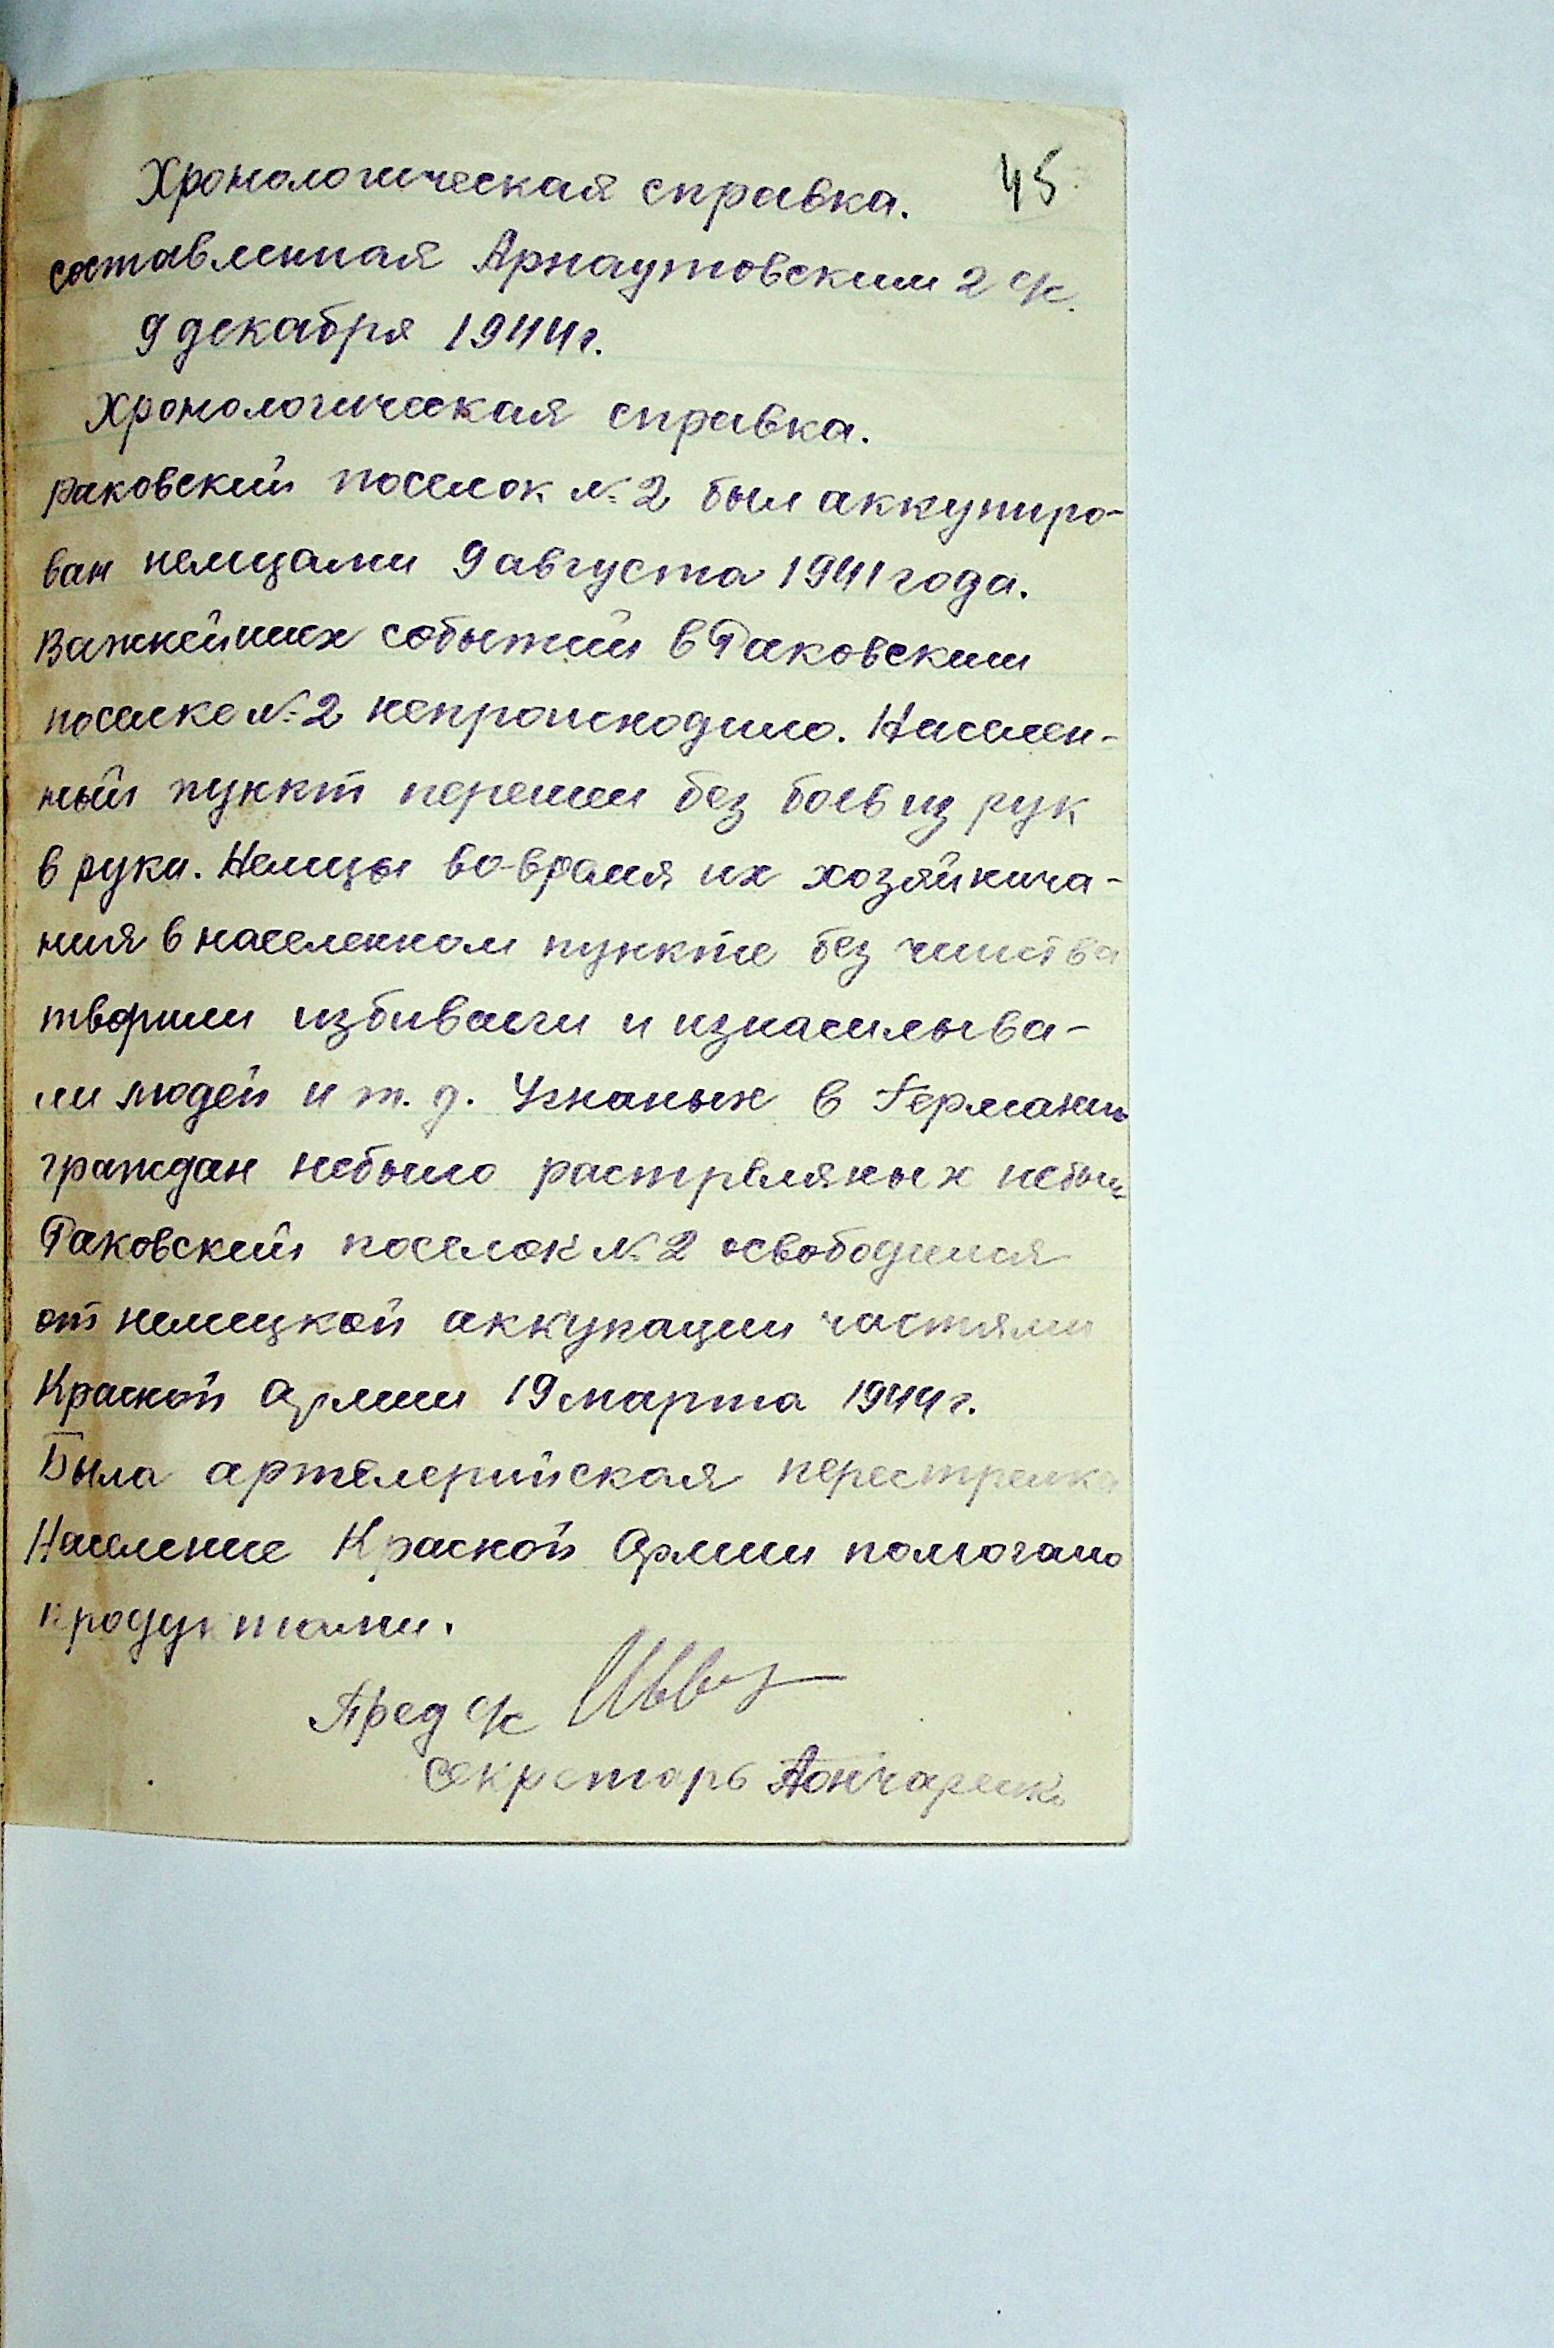 45
Хронологическая справка.
составленная Арнаутовским 2 с/с.
9 декабря 1944г.
Хронологическая справка.
Раковский поселок №2 был аккупиро-
ван немцами 9 августа 1941 года.
Важнейших событий в Раковским
поселке №2 непроисходило. Населен-
ный пункт перешел без боев из рук
в руки. Немцы во-время их хозяйнича-
ния в населенном пункте без чинства
творили избивали и изнасилыва-
ли людей и т. д. Угнаных в Германию
граждан небыло растреляных небыл
Раковский поселок №2 освободился
от немецкой аккупации частями
Краской Армии 19 марта 1944г.
Была артелерийская перестрелка
Население Краской Армии помогало
продуктами.
Пред с/с
секретарь Гончаренко